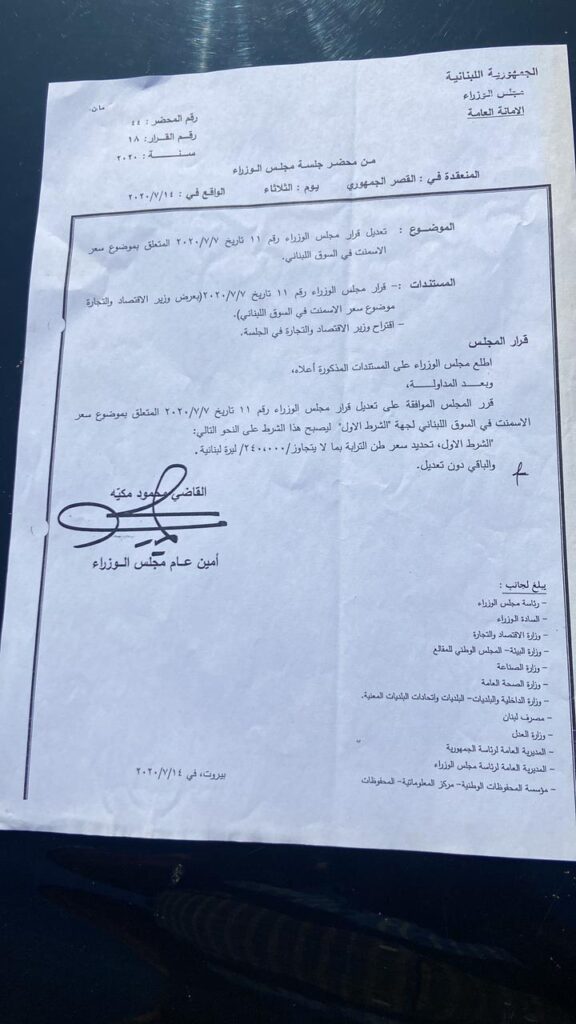 الجمهورية اللبنانية
مجلس الوزراء
الامانة العامة
رقم المحضر : ٤٤
رقم القرار : ١٨
سنة : ٢٠٢٠
من محضر جلسة مجلس الوزراء
المنعقدة في : القصر الجمهوري يوم : الثلاثاء الواقع في : ٢٠٢٠/٧/١٤
الموضوع : تعديل قرار مجلس الوزراء رقم ١١ تاريخ ٢٠٢٠/٧/٧ المتعلق بموضوع سعر
الاسمنت في السوق اللبناني.
المستندات : - قرار مجلس الوزراء رقم ١١ تاريخ ٢٠٢٠/٧/٧ (بعرض وزير الاقتصاد والتجارة
موضوع سعر الاسمنت في السوق اللبناني).
- اقتراح وزير الاقتصاد والتجارة في الجلسة.
قرار المجلس
اطلع مجلس الوزراء على المستندات المذكورة أعلاه،
وبعد المداولة،
قرر المجلس الموافقة على تعديل قرار مجلس الوزراء رقم ١١ تاريخ ٢٠٢٠/٧/٧ المتعلق بموضوع سعر
الاسمنت في السوق اللبناني لجهة "الشرط الاول" ليصبح هذا الشرط على النحو التالي:
"الشرط الاول، تحديد سعر طن الترابة بما لا يتجاوز /٢٤٠،٠٠٠/ ليرة لبنانية.
والباقي دون تعديل.
القاضي محمود مكيّه
أمين عام مجلس الوزراء
يبلغ لجانب :
- رئاسة مجلس الوزراء
- السادة الوزراء
- وزارة الاقتصاد والتجارة
- وزارة البيئة - المجلس الوطني للمقالع
- وزارة الصناعة
- وزارة الصحة العامة
- وزارة الداخلية والبلديات - البلديات واتحادات البلديات المعنية.
- مصرف لبنان
- وزارة العدل
- المديرية العامة لرئاسة الجمهورية
- المديرية العامة لرئاسة مجلس الوزراء
- مؤسسة المحفوظات الوطنية - مركز المعلوماتية - المحفوظات
بيروت، في ٢٠٢٠/٧/١٤